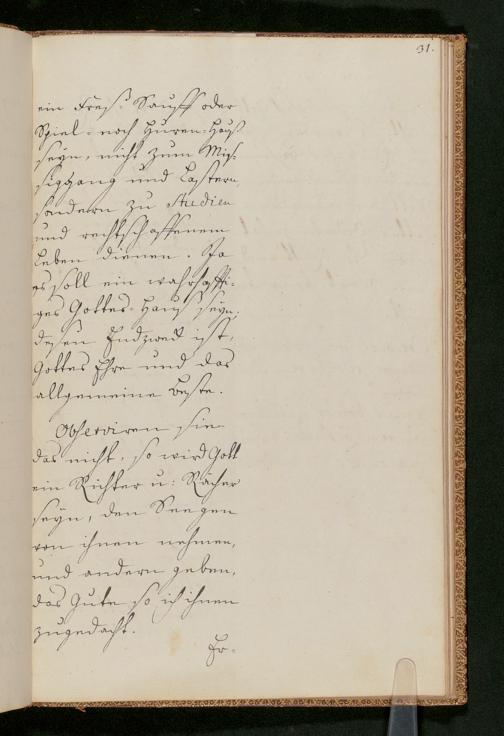 31.
ein Freß- Sauff oder
Spiel- noch Huren-Hauß
seyn, nicht zum Müs-
siggang und Lastern,
sondern zu Studien
und rechtschaffenem
Leben dienen. Ja
es soll ein wahrhaffti-
ges Gottes-Hauß seyn,
deßen Endzweck ist,
Gottes Ehre und das
allgemeine Beste.
Observiren sie
das nicht, so wird Gott
ein Richter u: Rächer
seyn, den Seegen
von ihnen nehmen,
und andern geben,
das Gute so ich ihnen
zugedacht.
Er-